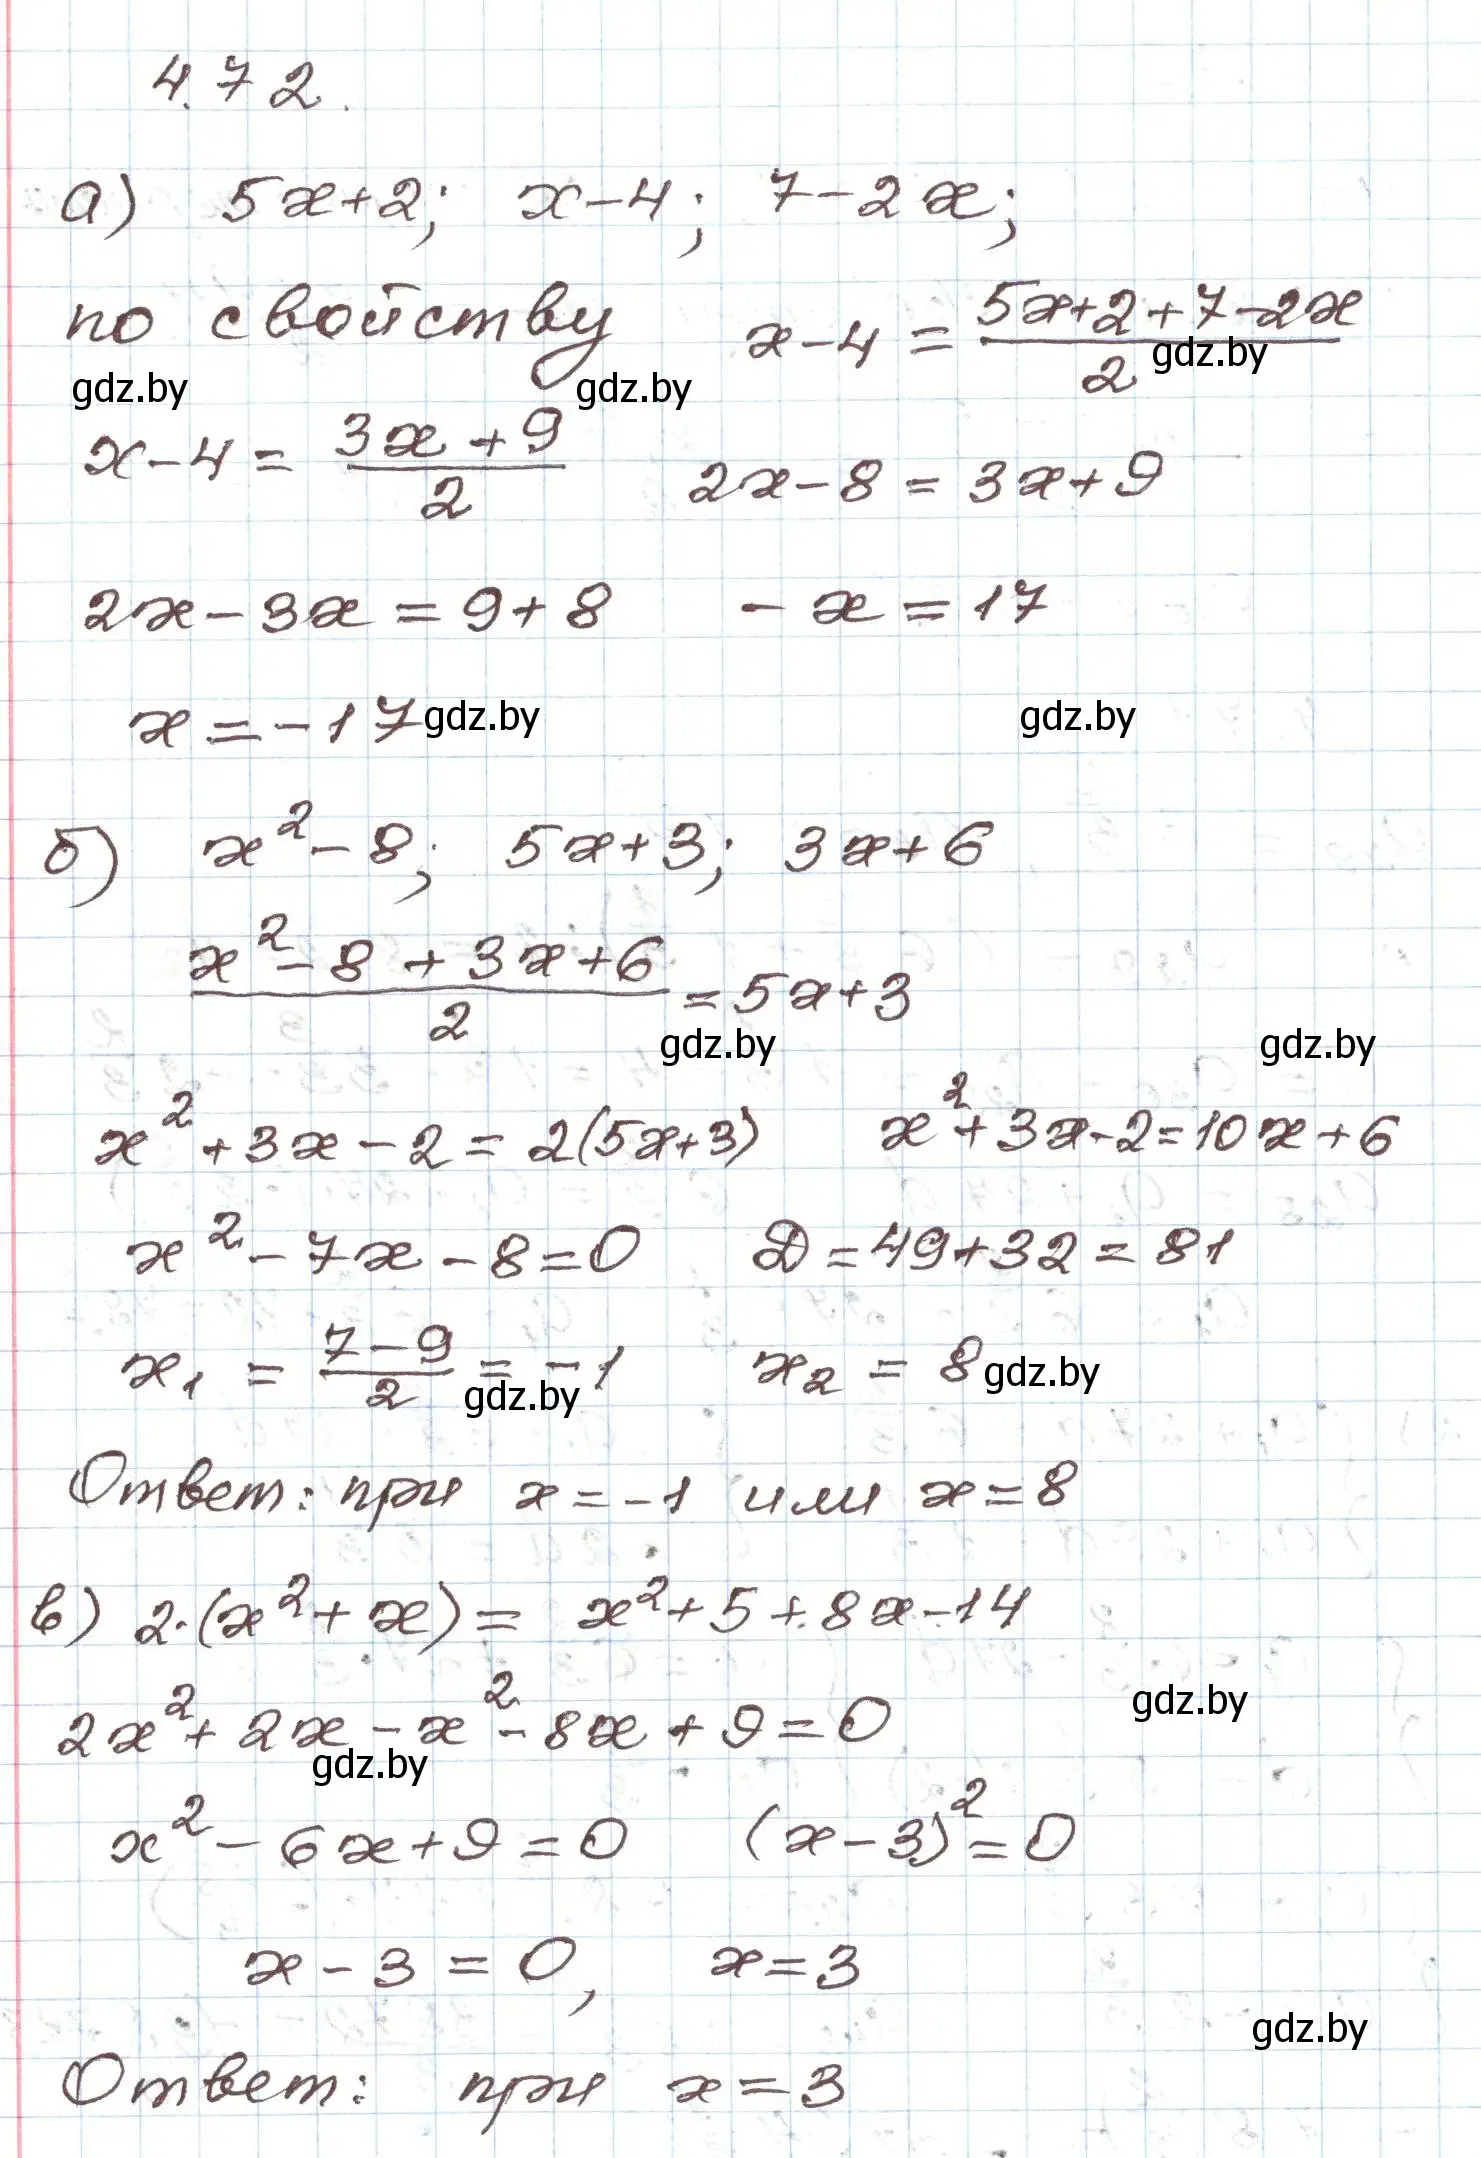 4.72.
а) 5x+2; x-4; 7-2x;
по свойству x-4 = (5x+2+7-2x)/2
gdz.by gdz.by gdz.by
x-4 = (3x+9)/2 2x-8 = 3x+9
2x-3x = 9+8 -x = 17
x = -17 gdz.by gdz.by
б) x²-8; 5x+3; 3x+6
(x²-8+3x+6)/2 = 5x+3
gdz.by gdz.by
x²+3x-2 = 2(5x+3) x²+3x-2=10x+6
x²-7x-8=0 D=49+32=81
x₁ = (7-9)/2 = -1 x₂ = 8
gdz.by gdz.by
Ответ: при x=-1 или x=8
в) 2·(x²+x) = x²+5+8x-14
gdz.by
2x²+2x-x²-8x+9=0
gdz.by
x²-6x+9=0 (x-3)²=0
x-3=0, x=3
gdz.by
Ответ: при x=3